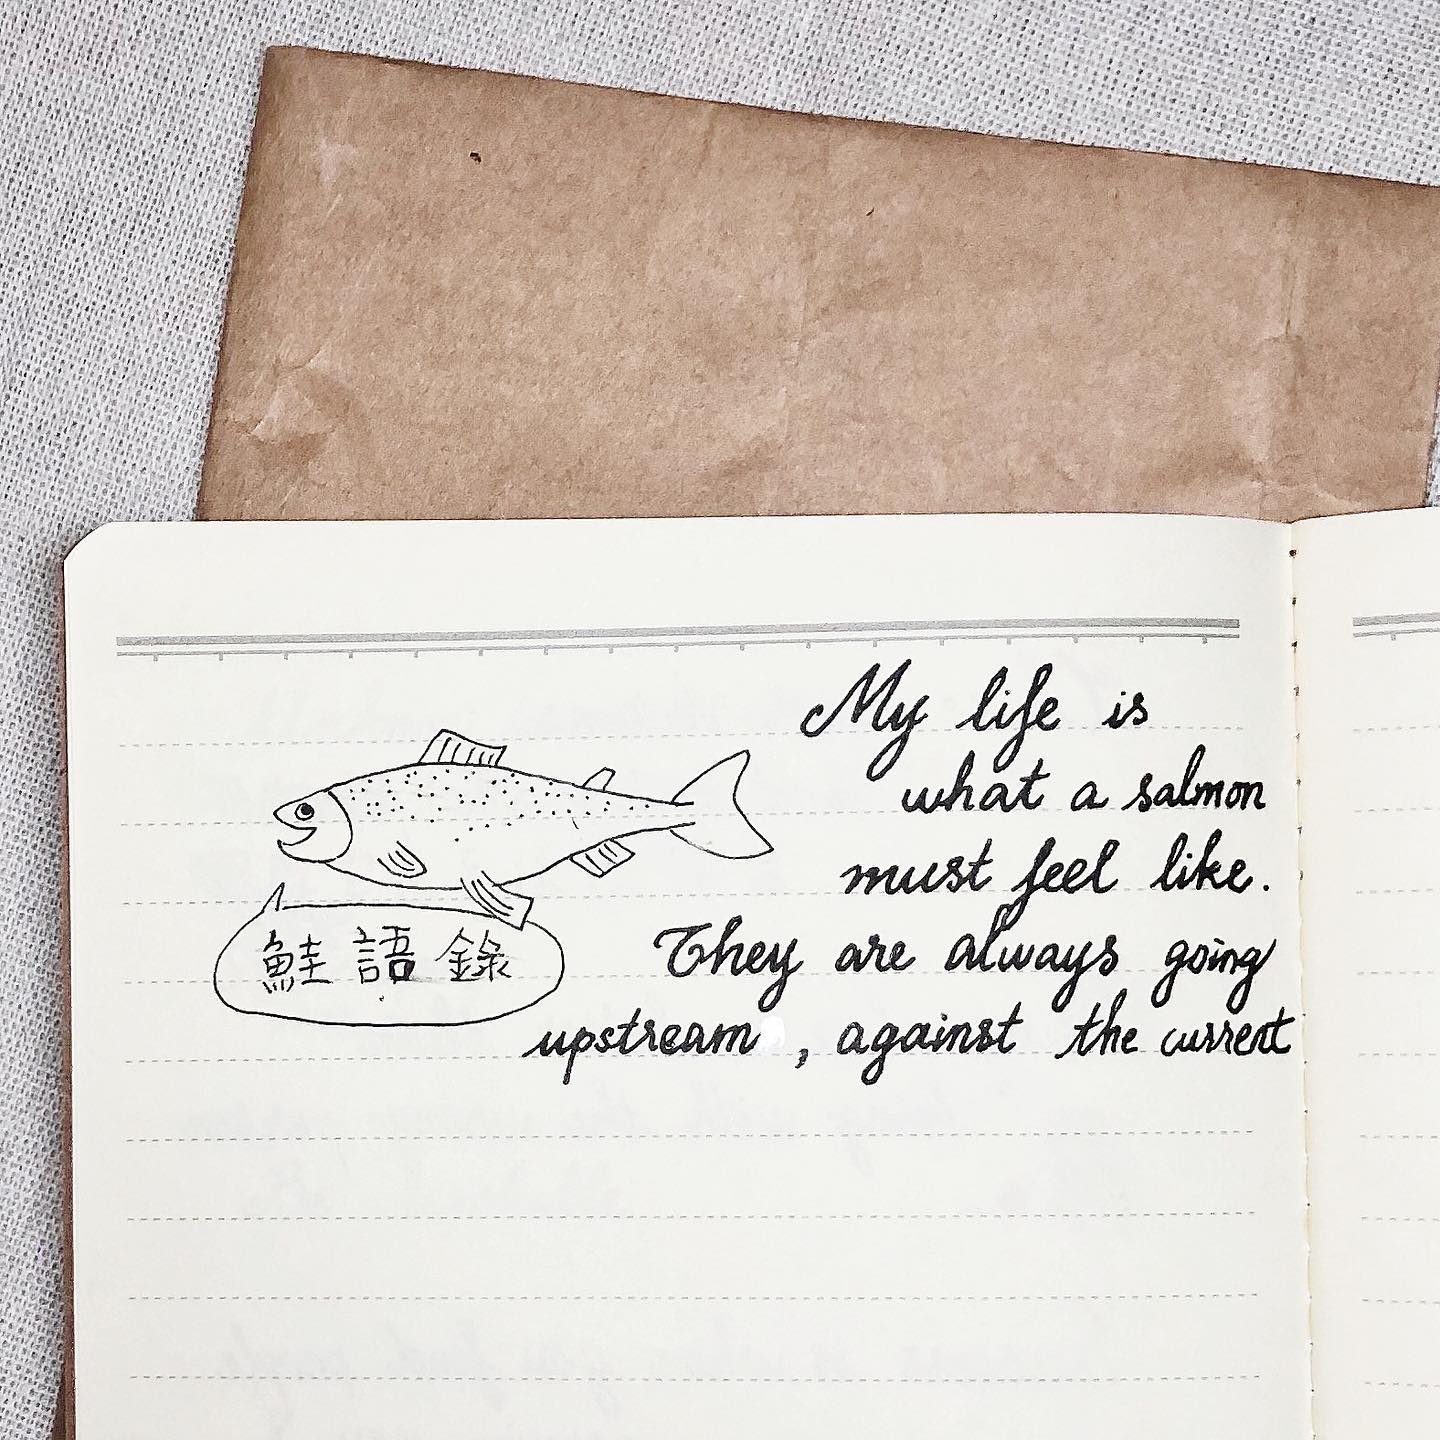 My life is
what a salmon
must feel like.
They are always going
upstream , against the current
鮭語錄